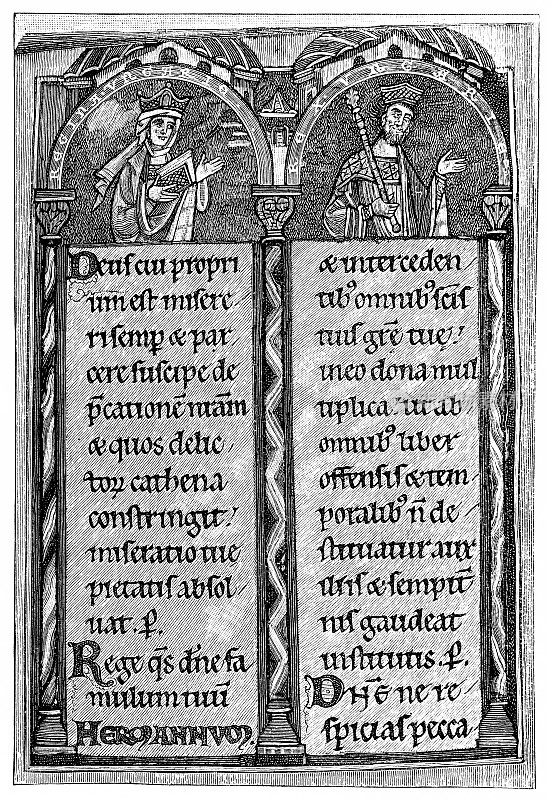 REGINA VNGARIE
REX VNGARI
Deuſ cui propri
um eſt miſere
ri ſemꝑ & par
cere ſuſcipe de
p̄cationē nr̄am
& quos delic
toꝝ cathena
conſtringit.
miſeratio tuę
pietatiſ abſol
uat. P̄.
Rege qs̄ dn̄e fa
mulum tuū
HERMANNVM.
& interceden
tibꝰ omnibꝰ ſc̄iſ
tuiſ grē tuę.
in eo dona mul
tiplica. ut ab
omnibꝰ liber
offenſiſ & tem
poralibꝰ n̄ de
ſtituatur aux
iliis & ſempit̄
nis gaudeat
inſtitutis. P̄.
DN̄E ne re
ſpiciaſ pecca